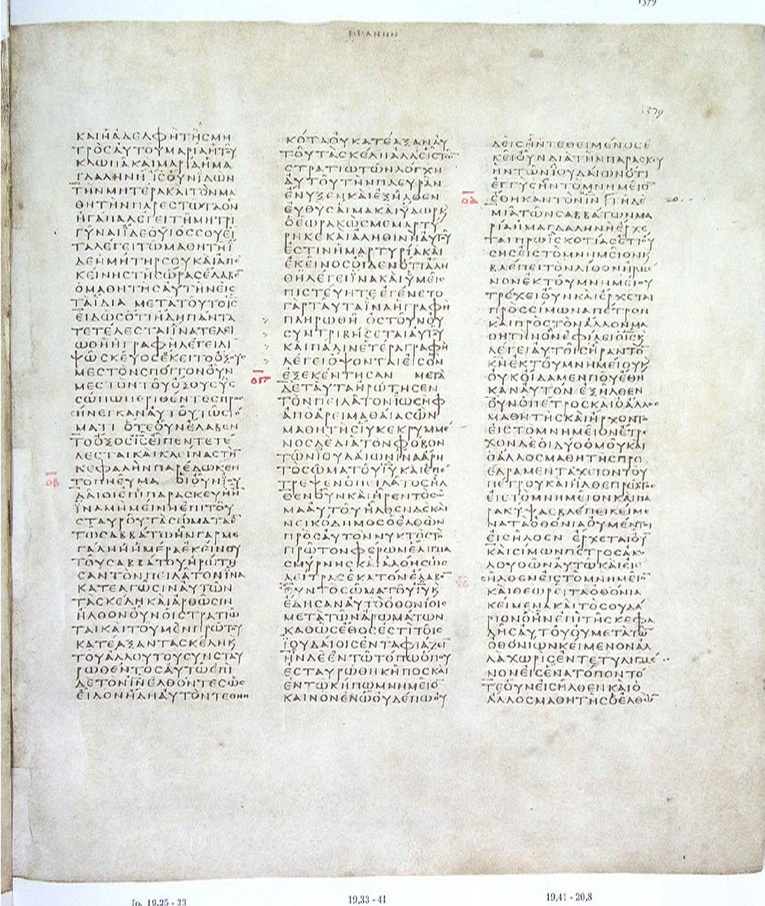 ΙΩΑΝΝΗΝ
1379
1379
ΚΑΙΗΑΔΕΛΦΗΤΗϹΜΗ
ΤΡΟϹΑΥΤΟΥΜΑΡΙΑΗΤΟΥ
ΚΛΩΠΑΚΑΙΜΑΡΙΑΗΜΑ
ΓΔΑΛΗΝΗΙϹΟΥΝΙΔΩΝ
ΤΗΝΜΗΤΕΡΑΚΑΙΤΟΝΜΑ
ΘΗΤΗΝΠΑΡΕϹΤΩΤΑΟΝ
ΗΓΑΠΑΛΕΓΕΙΤΗΜΗΤΡΙ
ΓΥΝΑΙΙΔΕΟΥΙΟϹϹΟΥΕΙ
ΤΑΛΕΓΕΙΤΩΜΑΘΗΤΗΙ
ΔΕΗΜΗΤΗΡϹΟΥΚΑΙΑΠΕ
ΚΕΙΝΗϹΤΗϹΩΡΑϹΕΛΑΒΕ
ΟΜΑΘΗΤΗϹΑΥΤΗΝΕΙϹ
ΤΑΙΔΙΑ ΜΕΤΑΤΟΥΤΟΙϹ
ΕΙΔΩϹΟΤΙΗΔΗΠΑΝΤΑ
ΤΕΤΕΛΕϹΤΑΙΙΝΑΤΕΛΕΙ
ΩΘΗΗΓΡΑΦΗΛΕΓΕΙΔΙ
ΨΩϹΚΕΥΟϹΕΚΕΙΤΟΟΞΟΥϹ
ΜΕϹΤΟΝϹΠΟΓΓΟΝΟΥΝ
ΜΕϹΤΟΝΤΟΥΟΞΟΥϹΥϹ
ϹΩΠΩΠΕΡΙΘΕΝΤΕϹΠΡΟ
ϹΗΝΕΓΚΑΝΑΥΤΟΥΤΩϹΤΟ
ΜΑΤΙ ΟΤΕΟΥΝΕΛΑΒΕΝ
ΤΟΟΞΟϹΙϹΕΙΠΕΝΤΕΤΕ
ΛΕϹΤΑΙΚΑΙΚΛΕΙΝΑϹΤΗ
ΚΕΦΑΛΗΝΠΑΡΕΔΩΚΕΝ
ΟΒ ΤΟΠΝΕΥΜΑ ΟΙΟΥΝΙΟΥ
ΔΑΙΟΙΕΠΙΠΑΡΑϹΚΕΥΗΗ
ΙΝΑΜΗΜΕΙΝΗΕΠΙΤΟΥ
ϹΤΑΥΡΟΥΤΑϹΩΜΑΤΑΕ
ΤΩϹΑΒΒΑΤΩΗΝΓΑΡΜΕ
ΓΑΛΗΗΗΜΕΡΑΕΚΕΙΝΟΥ
ΤΟΥϹΑΒΒΑΤΟΥΗΡΩΤΗ
ϹΑΝΤΟΝΠΕΙΛΑΤΟΝΙΝΑ
ΚΑΤΕΑΓΩϹΙΝΑΥΤΩΝ
ΤΑϹΚΕΛΗΚΑΙΑΡΘΩϹΙΝ
ΗΛΘΟΝΟΥΝΟΙϹΤΡΑΤΙΩ
ΤΑΙΚΑΙΤΟΥΜΕΝΠΡΩΤΟΥ
ΚΑΤΕΑΞΑΝΤΑϹΚΕΛΗΚ
ΤΟΥΑΛΛΟΥΤΟΥϹΥΝϹΤΑΥ
ΡΩΘΕΝΤΟϹΑΥΤΩΕΠΙ
ΔΕΤΟΝΙΝΕΛΘΟΝΤΕϹΩϹ
ΕΙΔΟΝΗΔΗΑΥΤΟΝΤΕΘΝΗ
ΚΟΤΑΟΥΚΑΤΕΑΞΑΝΑΥ
ΤΟΥΤΑϹΚΕΛΗΑΛΛΕΙϹΤΩ
ϹΤΡΑΤΙΩΤΩΝΛΟΓΧΗ
ΑΥΤΟΥΤΗΝΠΛΕΥΡΑΝ
ΕΝΥΞΕΝΚΑΙΕΞΗΛΘΕΝ
ΕΥΘΥϹΑΙΜΑΚΑΙΥΔΩΡΚ
ΟΕΩΡΑΚΩϹΜΕΜΑΡΤΥ
ΡΗΚΕΚΑΙΑΛΗΘΙΝΗΑΥΤΟΥ
ΕϹΤΙΝΗΜΑΡΤΥΡΙΑΚΑΙ
ΕΚΕΙΝΟϹΟΙΔΕΝΟΤΙΑΛΗ
ΘΗΛΕΓΕΙΙΝΑΚΑΙΥΜΕΙϹ
ΠΙϹΤΕΥΗΤΕΕΓΕΝΕΤΟ
ΓΑΡΤΑΥΤΑΙΝΑΗΓΡΑΦΗ
ΠΛΗΡΩΘΗ ΟϹΤΟΥΝΟΥ
ϹΥΝΤΡΙΒΗϹΕΤΑΙΑΥΤΟΥ
ΚΑΙΠΑΛΙΝΕΤΕΡΑΓΡΑΦΗ
ΛΕΓΕΙΟΨΟΝΤΑΙΕΙϹΟΝ
ΟΓ ΕΞΕΚΕΝΤΗϹΑΝ ΜΕΤΑ
ΔΕΤΑΥΤΑΗΡΩΤΗϹΕΝ
ΤΟΝΠΕΙΛΑΤΟΝΙΩϹΗΦ
ΑΠΟΑΡΕΙΜΑΘΑΙΑϹΩΝ
ΜΑΘΗΤΗϹΙΥΚΕΚΡΥΜΜΕ
ΝΟϹΔΕΔΙΑΤΟΝΦΟΒΟΝ
ΤΩΝΙΟΥΔΑΙΩΝΙΝΑΑΡΗ
ΤΟϹΩΜΑΤΟΥΙΥΚΑΙΕΠΕ
ΤΡΕΨΕΝΟΠΕΙΛΑΤΟϹΗΛ
ΘΕΝΟΥΝΚΑΙΗΡΕΝΤΟϹΩ
ΜΑΑΥΤΟΥΗΛΘΕΝΔΕΚΑΙ
ΝΕΙΚΟΔΗΜΟϹΟΕΛΘΩΝ
ΠΡΟϹΑΥΤΟΝΝΥΚΤΟϹΤΟ
ΠΡΩΤΟΝΦΕΡΩΝΕΛΙΓΜΑ
ϹΜΥΡΝΗϹΚΑΙΑΛΟΗϹΩϹ
ΛΕΙΤΡΑϹΕΚΑΤΟΝΕΛΑΒΟ
ΟΥΝΤΟϹΩΜΑΤΟΥΙΥΚ
ΕΔΗϹΑΝΑΥΤΟΟΘΟΝΙΟΙϹ
ΜΕΤΑΤΩΝΑΡΩΜΑΤΩΝ
ΚΑΘΩϹΕΘΟϹΕϹΤΙΤΟΙϹ
ΙΟΥΔΑΙΟΙϹΕΝΤΑΦΙΑΖΕΙ
ΗΝΔΕΕΝΤΩΤΟΠΩΟΠΟΥ
ΕϹΤΑΥΡΩΘΗΚΗΠΟϹΚΑΙ
ΕΝΤΩΚΗΠΩΜΝΗΜΕΙΟ
ΚΑΙΝΟΝΕΝΩΟΥΔΕΠΩΟΥ
ΔΕΙϹΗΝΤΕΘΕΙΜΕΝΟϹΕ
ΚΕΙΟΥΝΔΙΑΤΗΝΠΑΡΑϹΚΕΥ
ΗΝΤΩΝΙΟΥΔΑΙΩΝΟΤΙ
ΕΓΓΥϹΗΝΤΟΜΝΗΜΕΙΟ
ΟΔ ΕΘΗΚΑΝΤΟΝΙΝ ΤΗΔΕ
ΜΙΑΤΩΝϹΑΒΒΑΤΩΝΜΑ
ΡΙΑΗΜΑΓΔΑΛΗΝΗΕΡΧΕ
ΤΑΙΠΡΩΙϹΚΟΤΙΑϹΕΤΙΟΥ
ϹΗϹΕΙϹΤΟΜΝΗΜΕΙΟΝΚ
ΒΛΕΠΕΙΤΟΝΛΙΘΟΝΗΡΜΕ
ΝΟΝΕΚΤΟΥΜΝΗΜΕΙΟΥ
ΤΡΕΧΕΙΟΥΝΚΑΙΕΡΧΕΤΑΙ
ΠΡΟϹϹΙΜΩΝΑΠΕΤΡΟΝ
ΚΑΙΠΡΟϹΤΟΝΑΛΛΟΝΜΑ
ΘΗΤΗΝΟΝΕΦΙΛΕΙΟΙϹΚ
ΛΕΓΕΙΑΥΤΟΙϹΗΡΑΝΤΟ
ΚΝΕΚΤΟΥΜΝΗΜΕΙΟΥΚ
ΟΥΚΟΙΔΑΜΕΝΠΟΥΕΘΗ
ΚΑΝΑΥΤΟΝ ΕΞΗΛΘΕΝ
ΟΥΝΟΠΕΤΡΟϹΚΑΙΟΑΛΛΟϹ
ΜΑΘΗΤΗϹΚΑΙΗΡΧΟΝΤΟ
ΕΙϹΤΟΜΝΗΜΕΙΟΝΕΤΡΕ
ΧΟΝΔΕΟΙΔΥΟΟΜΟΥΚΑΙ
ΟΑΛΛΟϹΜΑΘΗΤΗϹΠΡΟ
ΕΔΡΑΜΕΝΤΑΧΕΙΟΝΤΟΥ
ΠΕΤΡΟΥΚΑΙΗΛΘΕΠΡΩΤΟϹ
ΕΙϹΤΟΜΝΗΜΕΙΟΝΚΑΙΠΑ
ΡΑΚΥΨΑϹΒΛΕΠΕΙΚΕΙΜΕ
ΝΑΤΑΟΘΟΝΙΑΟΥΜΕΝΤΟΙ
ΕΙϹΗΛΘΕΝ ΕΡΧΕΤΑΙΟΥ
ΚΑΙϹΙΜΩΝΠΕΤΡΟϹΑΚΟ
ΛΟΥΘΩΝΑΥΤΩΚΑΙΕΙϹ
ΗΛΘΕΝΕΙϹΤΟΜΝΗΜΕΙ
ΚΑΙΘΕΩΡΕΙΤΑΟΘΟΝΙΑ
ΚΕΙΜΕΝΑΚΑΙΤΟϹΟΥΔΑ
ΡΙΟΝΟΗΝΕΠΙΤΗϹΚΕΦΑ
ΛΗϹΑΥΤΟΥΟΥΜΕΤΑΤΩ
ΟΘΟΝΙΩΝΚΕΙΜΕΝΟΝΑΛ
ΛΑΧΩΡΙϹΕΝΤΕΤΥΛΙΓΜΕ
ΝΟΝΕΙϹΕΝΑΤΟΠΟΝΤΟ
ΤΕΟΥΝΕΙϹΗΛΘΕΝΚΑΙΟ
ΑΛΛΟϹΜΑΘΗΤΗϹΟΕΛΘΩ
Io. 19,25 - 23
19,33 - 41
19,41 - 20,8